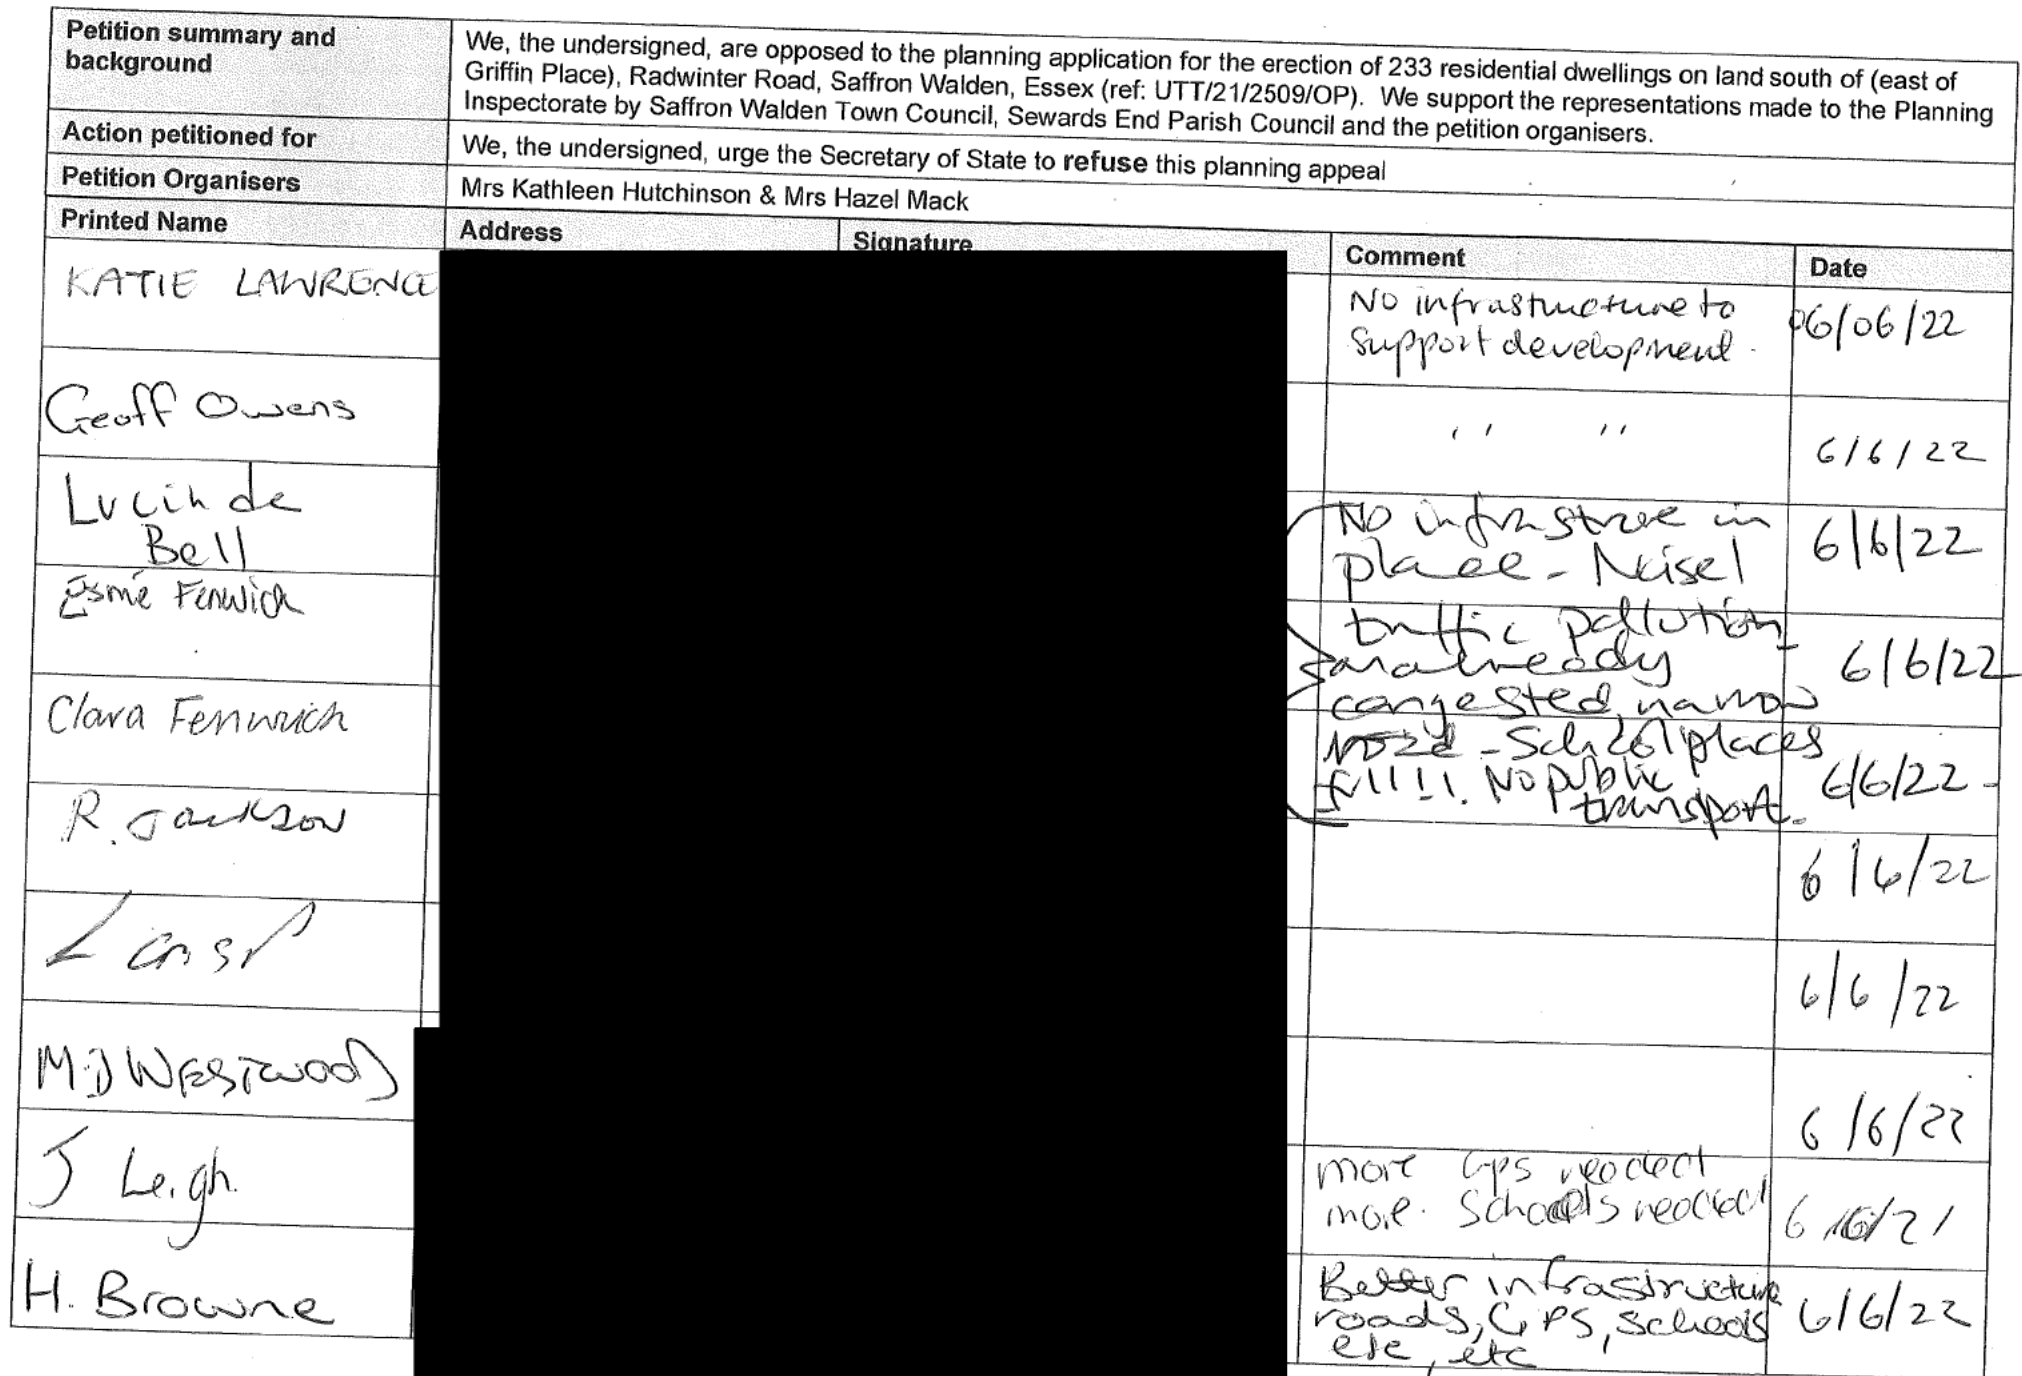 Petition summary and
background
We, the undersigned, are opposed to the planning application for the erection of 233 residential dwellings on land south of (east of
Griffin Place), Radwinter Road, Saffron Walden, Essex (ref: UTT/21/2509/OP). We support the representations made to the Planning
Inspectorate by Saffron Walden Town Council, Sewards End Parish Council and the petition organisers.
Action petitioned for
We, the undersigned, urge the Secretary of State to refuse this planning appeal
Petition Organisers
Mrs Kathleen Hutchinson & Mrs Hazel Mack
Printed Name Address Signature Comment Date
KATIE LAWRENCE
No infrastructure to
support development.
06/06/22
Geoff Owens
" "
6/6/22
Lucinda
Bell
No in
place - Noise
6/6/22
Esmé Fenwick
traffic pollution
already
congested, narrow
6/6/22
Clara Fenwick
road - School places
full!!. No public
transport.
6/6/22
R. Jackson
6/6/22
L
6/6/22
MD WESTWOOD
6/6/22
J Leigh.
more GPs needed
more Schools needed
6/6/21
H. Browne
Better infrastructure
roads, GPS, schools
etc, etc
6/6/22